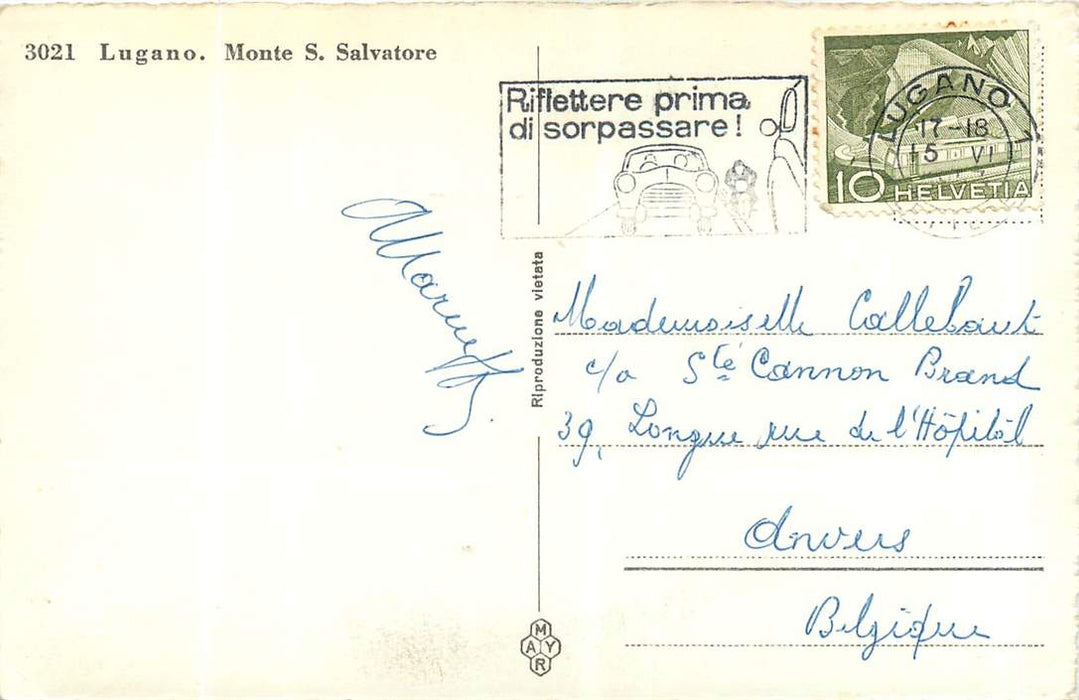 3021 Lugano. Monte S. Salvatore
Riflettere prima
di sorpassare!
LUGANO 1
17-18
15 VI
10 HELVETIA
Riproduzione vietata
Mademoiselle Callebaut
c/o Sté Cannon Brand
39, Longue rue de l'Hôpital
Anvers
Belgique
MAYR